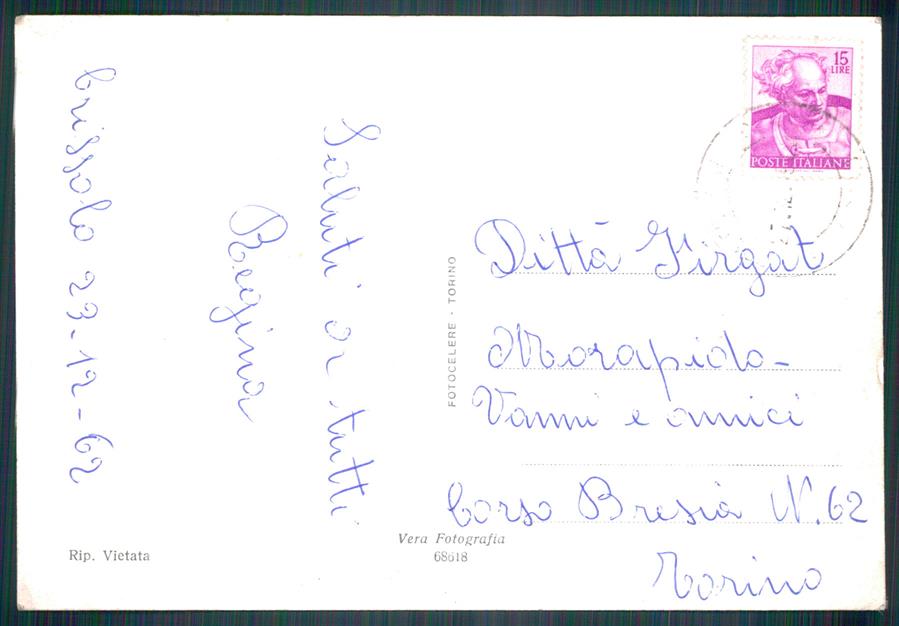 Crissolo 23-12-62
Saluti a tutti
Regina
15
LIRE
POSTE ITALIANE
Ditta Firgat
Morapido-
Vanni e amici
Corso Bresia N. 62
Torino
FOTOCELERE - TORINO
Vera Fotografia
68618
Rip. Vietata